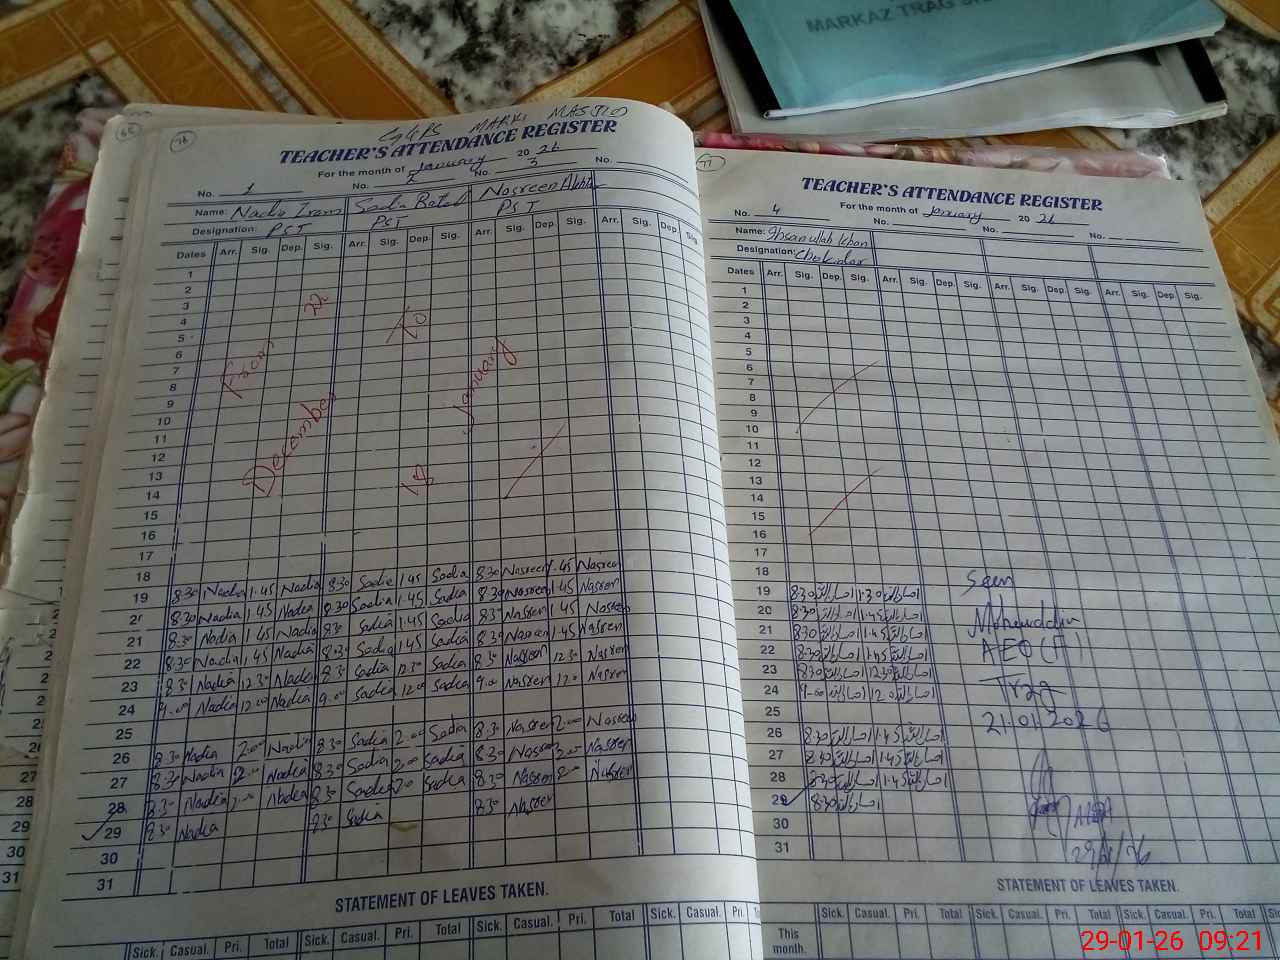 MARKAZ TRAG
GGPS MARKI MASJID
TEACHER'S ATTENDANCE REGISTER
For the month of January 2026
No. 1 No. 2 No. 3 No.
Name: Nadia Iram Sadia Batool Nasreen Akhtar
Designation: PST PST PST
Dates Arr. Sig. Dep. Sig. Arr. Sig. Dep. Sig. Arr. Sig. Dep. Sig. Arr. Sig. Dep. Sig.
1
2
3
4
5
6
7
8
9
10
11
12
13
14
15
16
17
From 22 December To 18 January
18
19 8:30 Nadia 1.45 Nadia 8:30 Sadia 1.45 Sadia 8:30 Nasreen 1.45 Nasreen
20 8:30 Nadia 1.45 Nadia 8:30 Sadia 1.45 Sadia 8:30 Nasreen 1.45 Nasreen
21 8:30 Nadia 1.45 Nadia 8:30 Sadia 1.45 Sadia 8:30 Nasreen 1.45 Nasreen
22 8:30 Nadia 1.45 Nadia 8:30 Sadia 1.45 Sadia 8:30 Nasreen 1.45 Nasreen
23 8:30 Nadia 12.30 Nadia 8:30 Sadia 12.30 Sadia 8:30 Nasreen 12.30 Nasreen
24 9.00 Nadia 12.00 Nadia 9.00 Sadia 12.00 Sadia 9.00 Nasreen 12.00 Nasreen
25
26 8:30 Nadia 2.00 Nadia 8:30 Sadia 2.00 Sadia 8:30 Nasreen 2.00 Nasreen
27 8:30 Nadia 2.00 Nadia 8:30 Sadia 2.00 Sadia 8:30 Nasreen 2.00 Nasreen
28 8:30 Nadia 2.00 Nadia 8:30 Sadia 2.00 Sadia 8:30 Nasreen 2.00 Nasreen
29 8:30 Nadia 8:30 Sadia 8:30 Nasreen
30
31
STATEMENT OF LEAVES TAKEN.
Sick. Casual. Pri. Total Sick. Casual. Pri. Total Sick. Casual. Pri. Total Sick. Casual. Pri.
77
TEACHER'S ATTENDANCE REGISTER
For the month of January 2026
No. 4 No. No. No.
Name: Ihsanullah Khan
Designation: Chokidar
Dates Arr. Sig. Dep. Sig. Arr. Sig. Dep. Sig. Arr. Sig. Dep. Sig. Arr. Sig. Dep. Sig.
1
2
3
4
5
6
7
8
9
10
11
12
13
14
15
16
17
18
19 8:30 احسان اللہ 1:30 احسان اللہ
20 8:30 احسان اللہ 1:45 احسان اللہ
21 8:30 احسان اللہ 1:45 احسان اللہ
22 8:30 احسان اللہ 1:45 احسان اللہ
23 8:30 احسان اللہ 12:30 احسان اللہ
24 9:00 احسان اللہ 12:00 احسان اللہ
25
26 8:30 احسان اللہ 1:45 احسان اللہ
27 8:30 احسان اللہ 1:45 احسان اللہ
28 8:30 احسان اللہ 1:45 احسان اللہ
29 8:30 احسان اللہ
30
31
Seen
AEO (F)
Trag
21.01.2026
29/01/26
STATEMENT OF LEAVES TAKEN.
Sick. Casual. Pri. Total Sick. Casual. Pri. Total Sick. Casual.
This month.
29-01-26 09:21